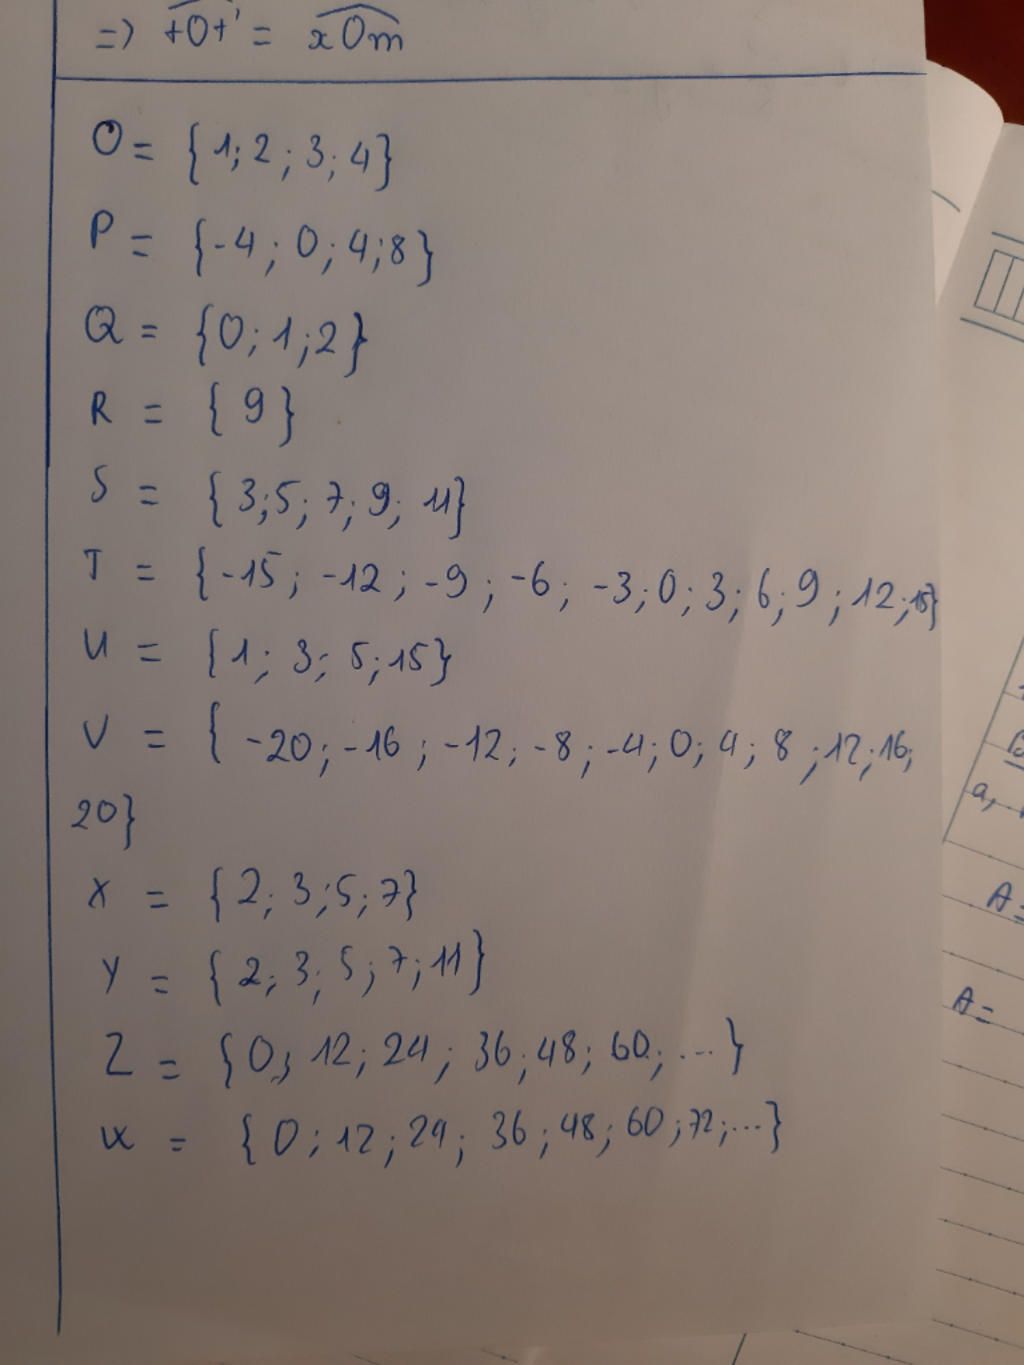 => tOt' = xOm
O = {1; 2; 3; 4}
P = {-4; 0; 4; 8}
Q = {0; 1; 2}
R = {9}
S = {3; 5; 7; 9; 11}
T = {-15; -12; -9; -6; -3; 0; 3; 6; 9; 12; 15}
U = {1; 3; 5; 15}
V = {-20; -16; -12; -8; -4; 0; 4; 8; 12; 16;
20}
X = {2; 3; 5; 7}
Y = {2; 3; 5; 7; 11}
Z = {0; 12; 24; 36; 48; 60; ...}
= {0; 12; 24; 36; 48; 60; 72; ...}
a,
A=
A=